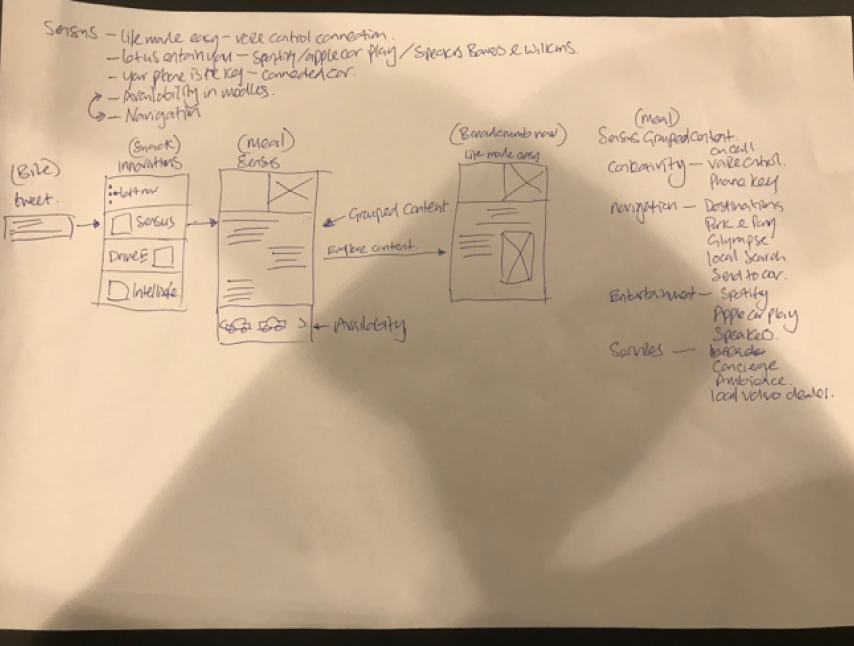 Sensus - Life made easy - voice control connection.
- Let us entertain you - Spotify/apple car play/Speakers Bowes & Wilkins.
- Your phone is the key - connected car.
- Availability in models.
- Navigation
(Bite)
tweet.
(Snack)
Innovations
left nav
Sensus
Drive E
Intellisafe
(Meal)
Sensus
Grouped Content.
Explore content
Availability
(Breadcrumb nav)
Life made easy
(meal)
Sensus Grouped content.
on call
Connectivity - voice control.
Phone key
Navigation - Destinations
Park & Pay
Glympse
local search
Send to car.
Entertainment - Spotify
Apple car play
Speakers.
Services -
Concierge
Ambience.
local volvo dealer.